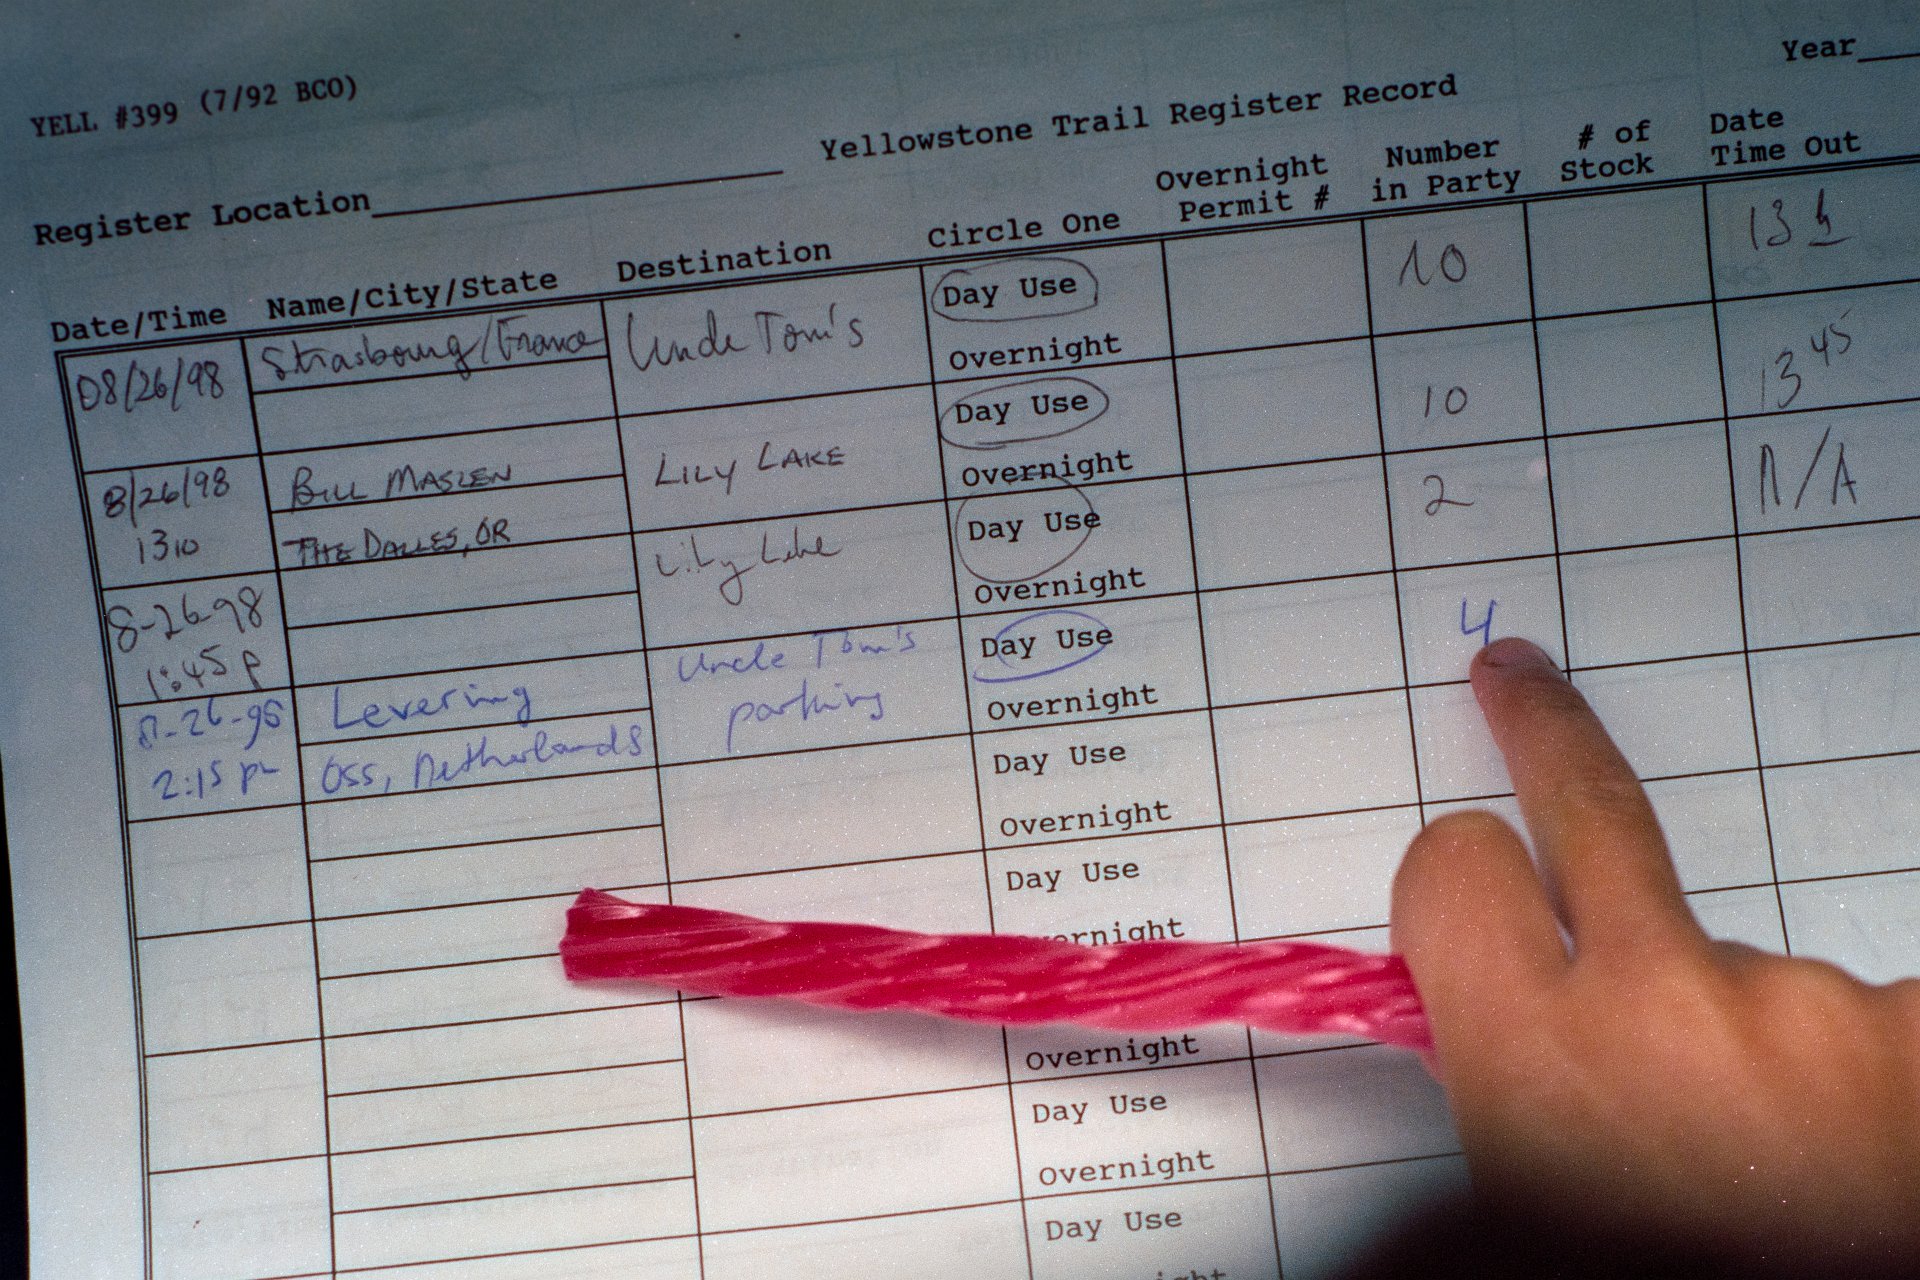 YELL #399 (7/92 BCO)
Yellowstone Trail Register Record
Year
Register Location
Date/Time Name/City/State Destination Circle One Overnight Permit # Number in Party # of Stock Date Time Out
08/26/98 Strasbourg/France Uncle Tom's Day Use 10 13 h
Overnight
8/26/98 BILL MASLEN LILY LAKE Day Use 10 13 45
1310 THE DALLES, OR Overnight
8-26-98 Lily Lake Day Use 2 N/A
1:45 p Overnight
8-26-98 Levering Uncle Tom's Day Use 4
2:15 pm Oss, Netherlands parking Overnight
Day Use
Overnight
Day Use
ernight
Overnight
Day Use
Overnight
Day Use